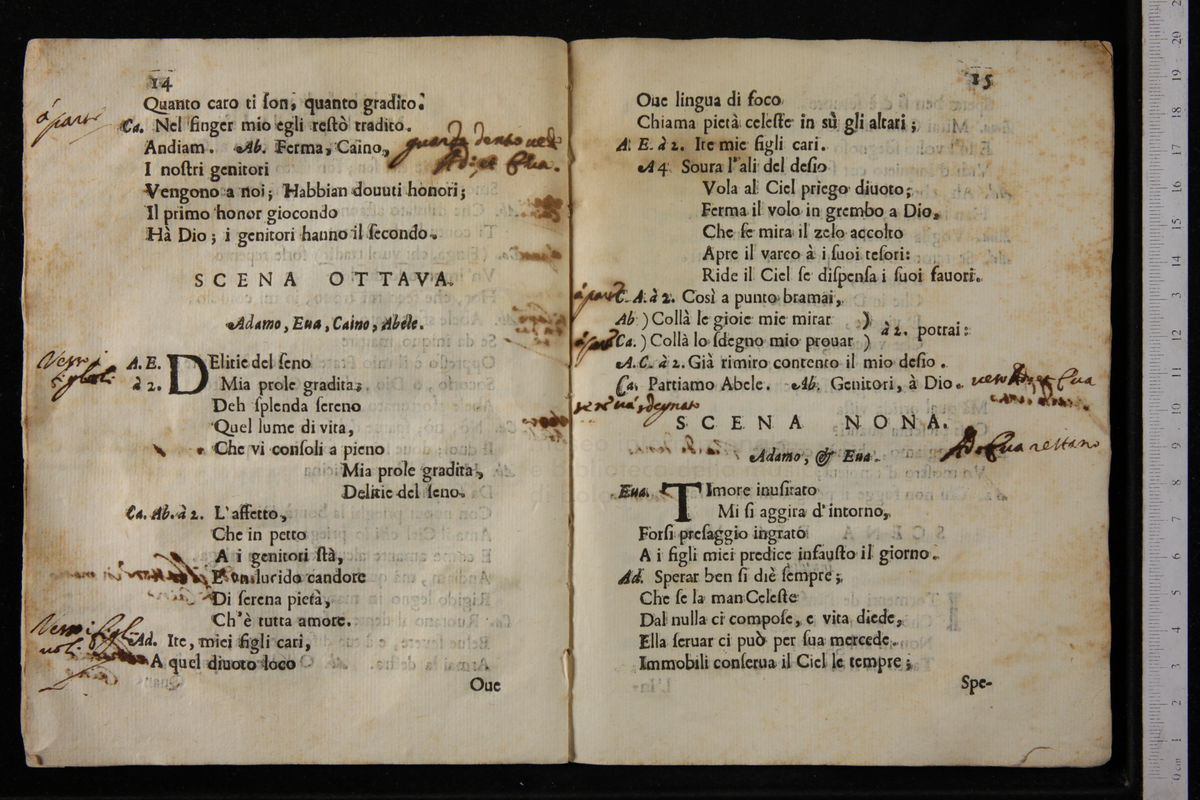 14
Quanto caro ti son, quanto gradito.
á parte
Ca. Nel finger mio egli restò tradito.
Andiam. Ab. Ferma, Caino, guarda dentro
Ad: et Eua.
I nostri genitori
Vengono a noi; Habbian douuti honori;
Il primo honor giocondo
Hà Dio; i genitori hanno il secondo.
SCENA OTTAVA.
Adamo, Eua, Caino, Abele.
Verso i
figlioli
A. E. DElitie del seno
à 2. Mia prole gradita,
Deh splenda sereno
Quel lume di vita,
Che vi consoli a pieno
Mia prole gradita,
Delitie del seno.
Ca. Ab. à 2. L'affetto,
Che in petto
A i genitori stà,
E con lucido candore
Di serena pietà,
Ch'è tutta amore.
Verso i figli-
uoli
Ad. Ite, miei figli cari,
A quel diuoto loco
Oue
15
Oue lingua di foco
Chiama pietà celeste in sù gli altari;
A. E. à 2. Ite mie figli cari.
A 4. Soura l'ali del desio
Vola al Ciel priego diuoto;
Ferma il volo in grembo a Dio,
Che se mira il zelo accolto
Apre il varco à i suoi tesori:
Ride il Ciel se dispensa i suoi fauori.
á parte C. A. à 2. Così a punto bramai,
Ab ) Collà le gioie mie mirar )
à 2. potrai:
á parte Ca. ) Collà lo sdegno mio prouar )
A. C. à 2. Già rimiro contento il mio desio.
Ca. Partiamo Abele. Ab. Genitori, à Dio. verso Ad. et Eua
se ne uá sdegnato
SCENA NONA.
Adamo, & Eua.
Ad. Eua restano
Eua. TImore inusitato
Mi si aggira d'intorno,
Forsi presaggio ingrato
A i figli miei predice infausto il giorno.
Ad. Sperar ben si diè sempre;
Che se la man Celeste
Dal nulla ci compose, e vita diede,
Ella seruar ci può per sua mercede.
Immobili conserua il Ciel le tempre;
Spe-